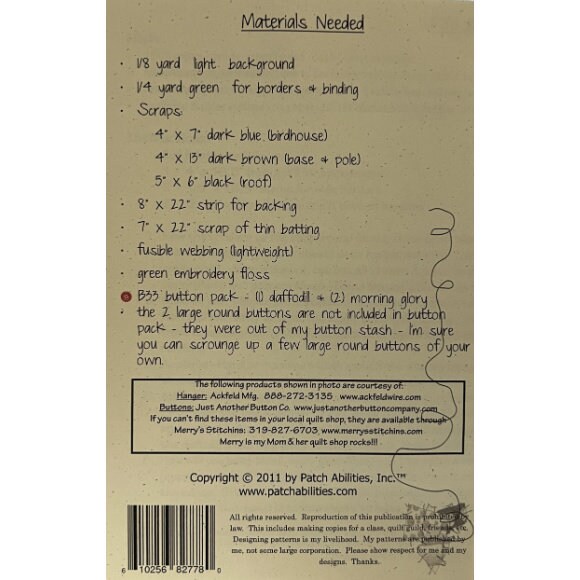 Materials Needed
· 1/8 yard light background
· 1/4 yard green for borders & binding
· Scraps:
4" x 7" dark blue (birdhouse)
4" x 13" dark brown (base & pole)
5" x 6" black (roof)
· 8" x 22" strip for backing
· 7" x 22" scrap of thin batting
· fusible webbing (lightweight)
· green embroidery floss
B33 button pack - (1) daffodil & (2) morning glory
· the 2 large round buttons are not included in button
pack - they were out of my button stash - I'm sure
you can scrounge up a few large round buttons of your
own.
The following products shown in photo are courtesy of:
Hanger: Ackfeld Mfg. 888-272-3135 www.ackfeldwire.com
Buttons: Just Another Button Co. www.justanotherbuttoncompany.com
If you can't find these items in your local quilt shop, they are available through
Merry's Stitchins: 319-827-6703 www.merrysstitchins.com
Merry is my Mom & her quilt shop rocks!!!
Copyright © 2011 by Patch Abilities, Inc.™
www.patchabilities.com
All rights reserved. Reproduction of this publication is prohibited by
law. This includes making copies for a class, quilt guild, friends, etc.
Designing patterns is my livelihood. My patterns are published by
me, not some large corporation. Please show respect for me and my
designs. Thanks.
6 10256 82778 0